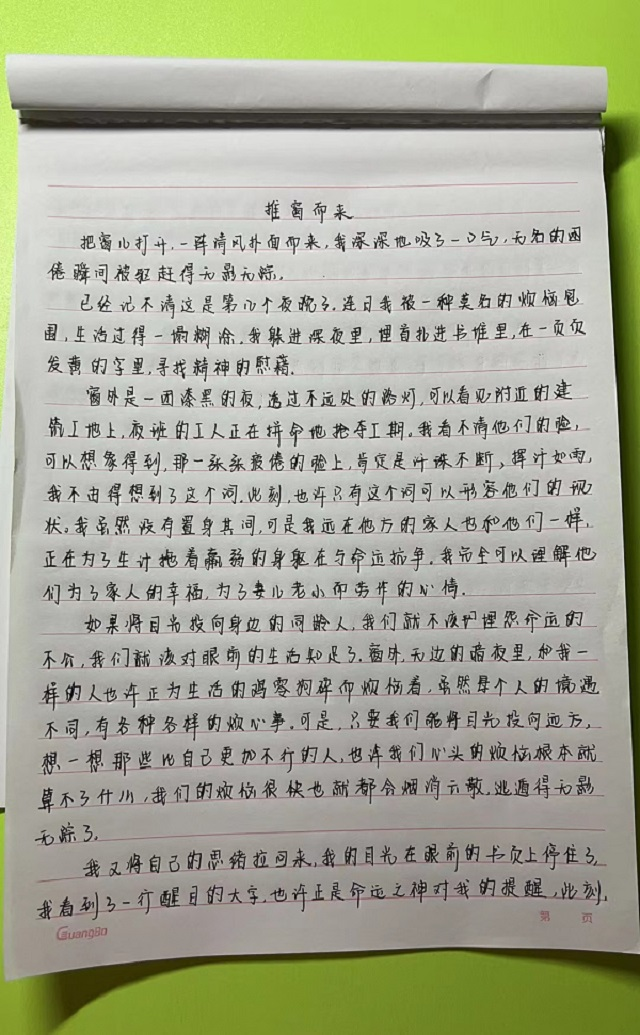 推窗而来
把窗儿打开,一阵清风扑面而来,我深深地吸了一口气,无名的困
倦瞬间被驱赶得无影无踪。
已经记不清这是第几个夜晚了。连日我被一种莫名的烦恼包
围,生活过得一塌糊涂,我躲进深夜里,埋首扎进书堆里,在一页页
发黄的字里,寻找精神的慰藉。
窗外是一团漆黑的夜,透过不远处的路灯,可以看见附近的建
筑工地上,夜班的工人正在拼命地抢夺工期。我看不清他们的脸,
可以想象得到,那一张张疲倦的脸上,肯定是汗珠不断,挥汗如雨,
我不由得想到了这个词。此刻,也许只有这个词可以形容他们的现
状。我虽然没有置身其间,可是我远在他方的家人也和他们一样,
正在为了生计拖着羸弱的身躯在与命运抗争。我完全可以理解他
们为了家人的幸福,为了妻儿老小而劳作的心情。
如果将目光投向身边的同龄人,我们就不该埋怨命运的
不公,我们就该对眼前的生活知足了。窗外,无边的暗夜里,和我一
样的人也许正为生活的鸡零狗碎而烦恼着,虽然每个人的境遇
不同,有各种各样的烦心事。可是,只要我们能将目光投向远方,
想一想那些比自己更加不行的人,也许我们心头的烦恼根本就
算不了什么,我们的烦恼很快也就都会烟消云散,逃遁得无影
无踪了。
我又将自己的思绪拉回来,我的目光在眼前的书页上停住了,
我看到了一行醒目的大字,也许正是命运之神对我的提醒,此刻,
第 页
GuangBo